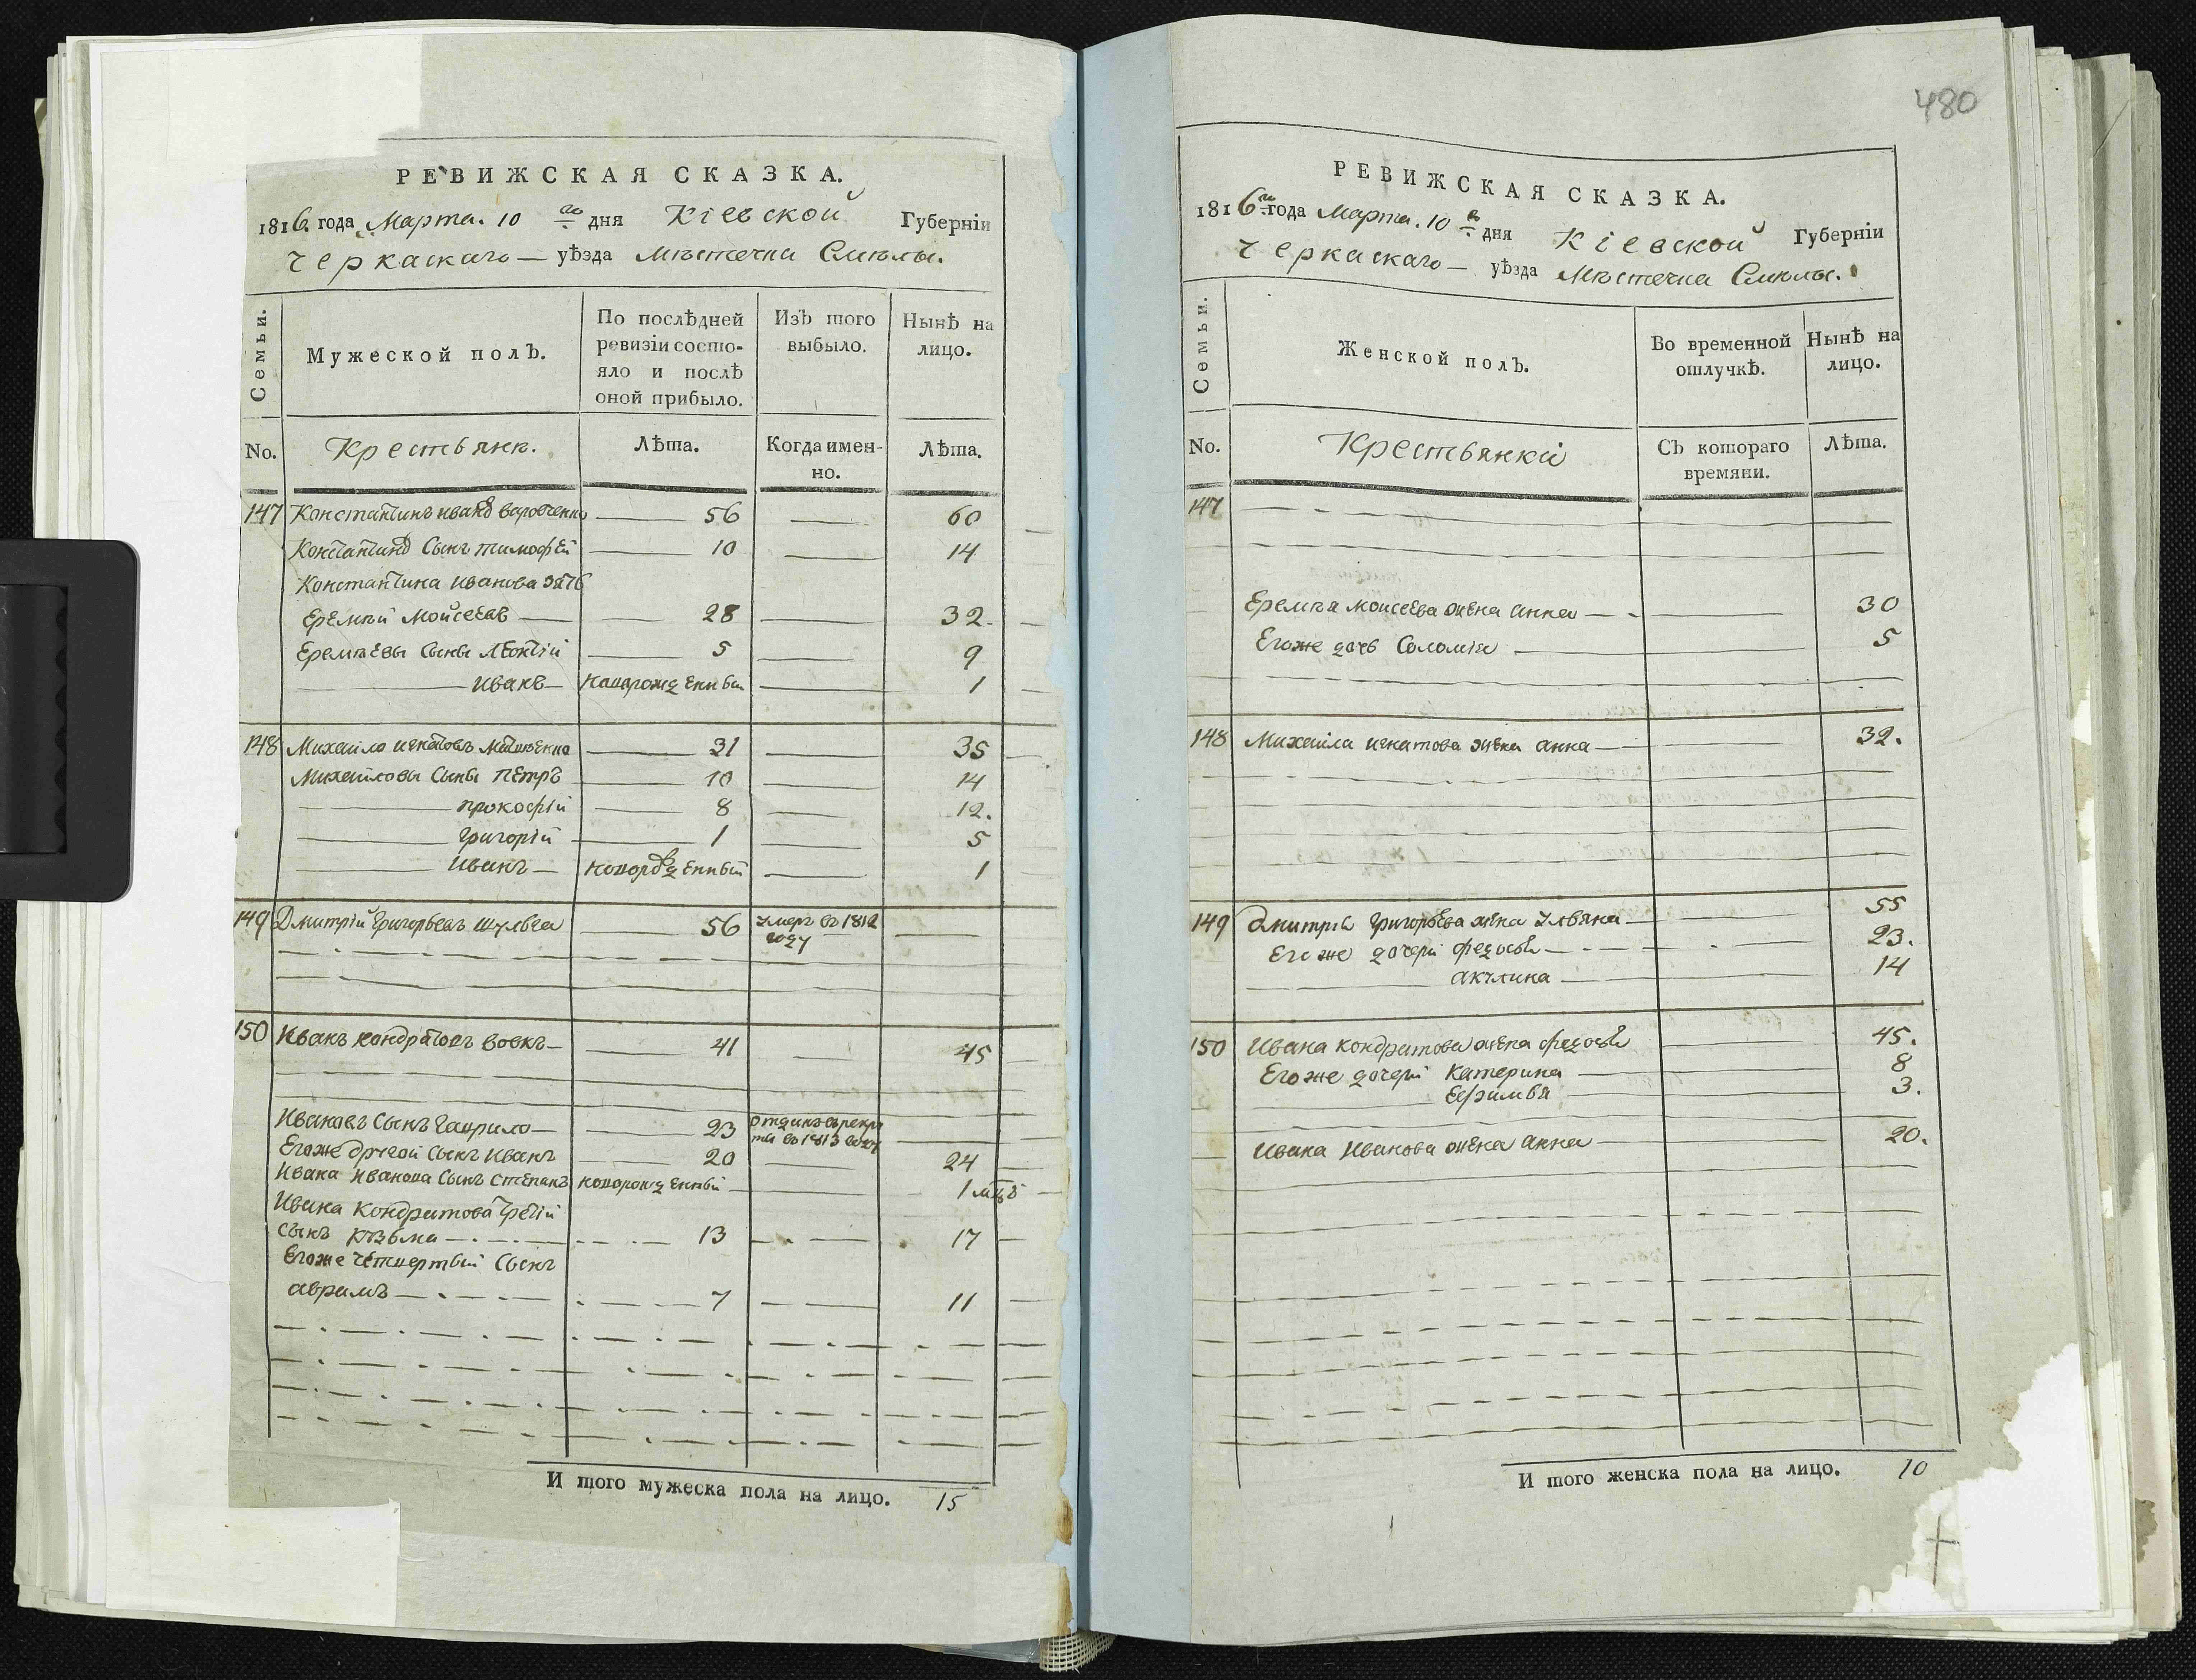 РЕВИЖСКАЯ СКАЗКА.
1816 года Марта. 10 го дня Кіевской Губерніи
Черкаскаго — уѣзда Мѣстечка Смѣлы.
Семьи.
Мужеской полъ.
По послѣдней ревизіи состояло и послѣ оной прибыло.
Изъ того выбыло.
Нынѣ на лицо.
No. Крестьянѣ. Лѣта. Когда именно. Лѣта.
147 Константинъ ивановъ 56 60
Константиновъ Сынъ тимофѣй 10 14
Константина иванова зять
Еремѣй Мойсеевъ 28 32.
Еремѣевы Сыны Леонтій 5 9
Иванъ новорожденный 1
148 Михайло игнатовъ 31 35
Михайловы Сыны Петръ 10 14
прокофій 8 12.
григорій 1 5
Иванъ новорожденный 1
149 Дмитрій Григорьевъ шульга 56 умеръ въ 1812
году
150 Иванъ кондратовъ вовкъ 41 45
Ивановъ Сынъ Гаврило 23 отданъ в рекру
ты въ 1813 году
Егоже другой Сынъ Иванъ 20 24
Ивана Иванова Сынъ Степанъ новорожденный 1 мцъ
Ивана Кондратова третій
Сынъ Кузьма 13 17
Егоже четвертый Сынъ
аврамъ 7 11
И того мужеска пола на лицо. 15
480
РЕВИЖСКАЯ СКАЗКА.
1816 го года Марта. 10 го дня Кіевской Губерніи
Черкаскаго — уѣзда Мѣстечка Смѣлы.
Семьи.
Женской полъ.
Во временной отлучкѣ.
Нынѣ на лицо.
No. Крестьянки Съ котораго времяни. Лѣта.
147
Еремѣя моисеева жена анна 30
Егоже дочь Соломія 5
148 Михайла игнатова жена анна 32.
149 Дмитрія григорьева жена Ульяна 55
Егоже дочери федосья 23.
акулина 14
150 Ивана кондратова жена федосья 45.
Егоже дочери Катерина 8
Ефимья 3.
Ивана Иванова жена анна 20.
И того женска пола на лицо. 10